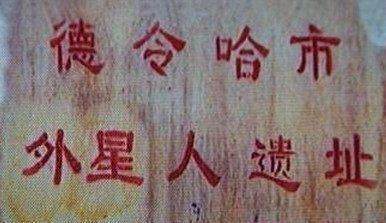 德令哈市
外星人遗址